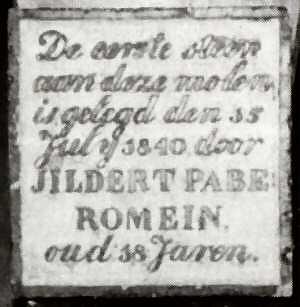 De eerste steen
aan deze molen
is gelegd den 15
July 1840 door
JILDERT PABE
ROMEIN.
oud 18 Jaren.